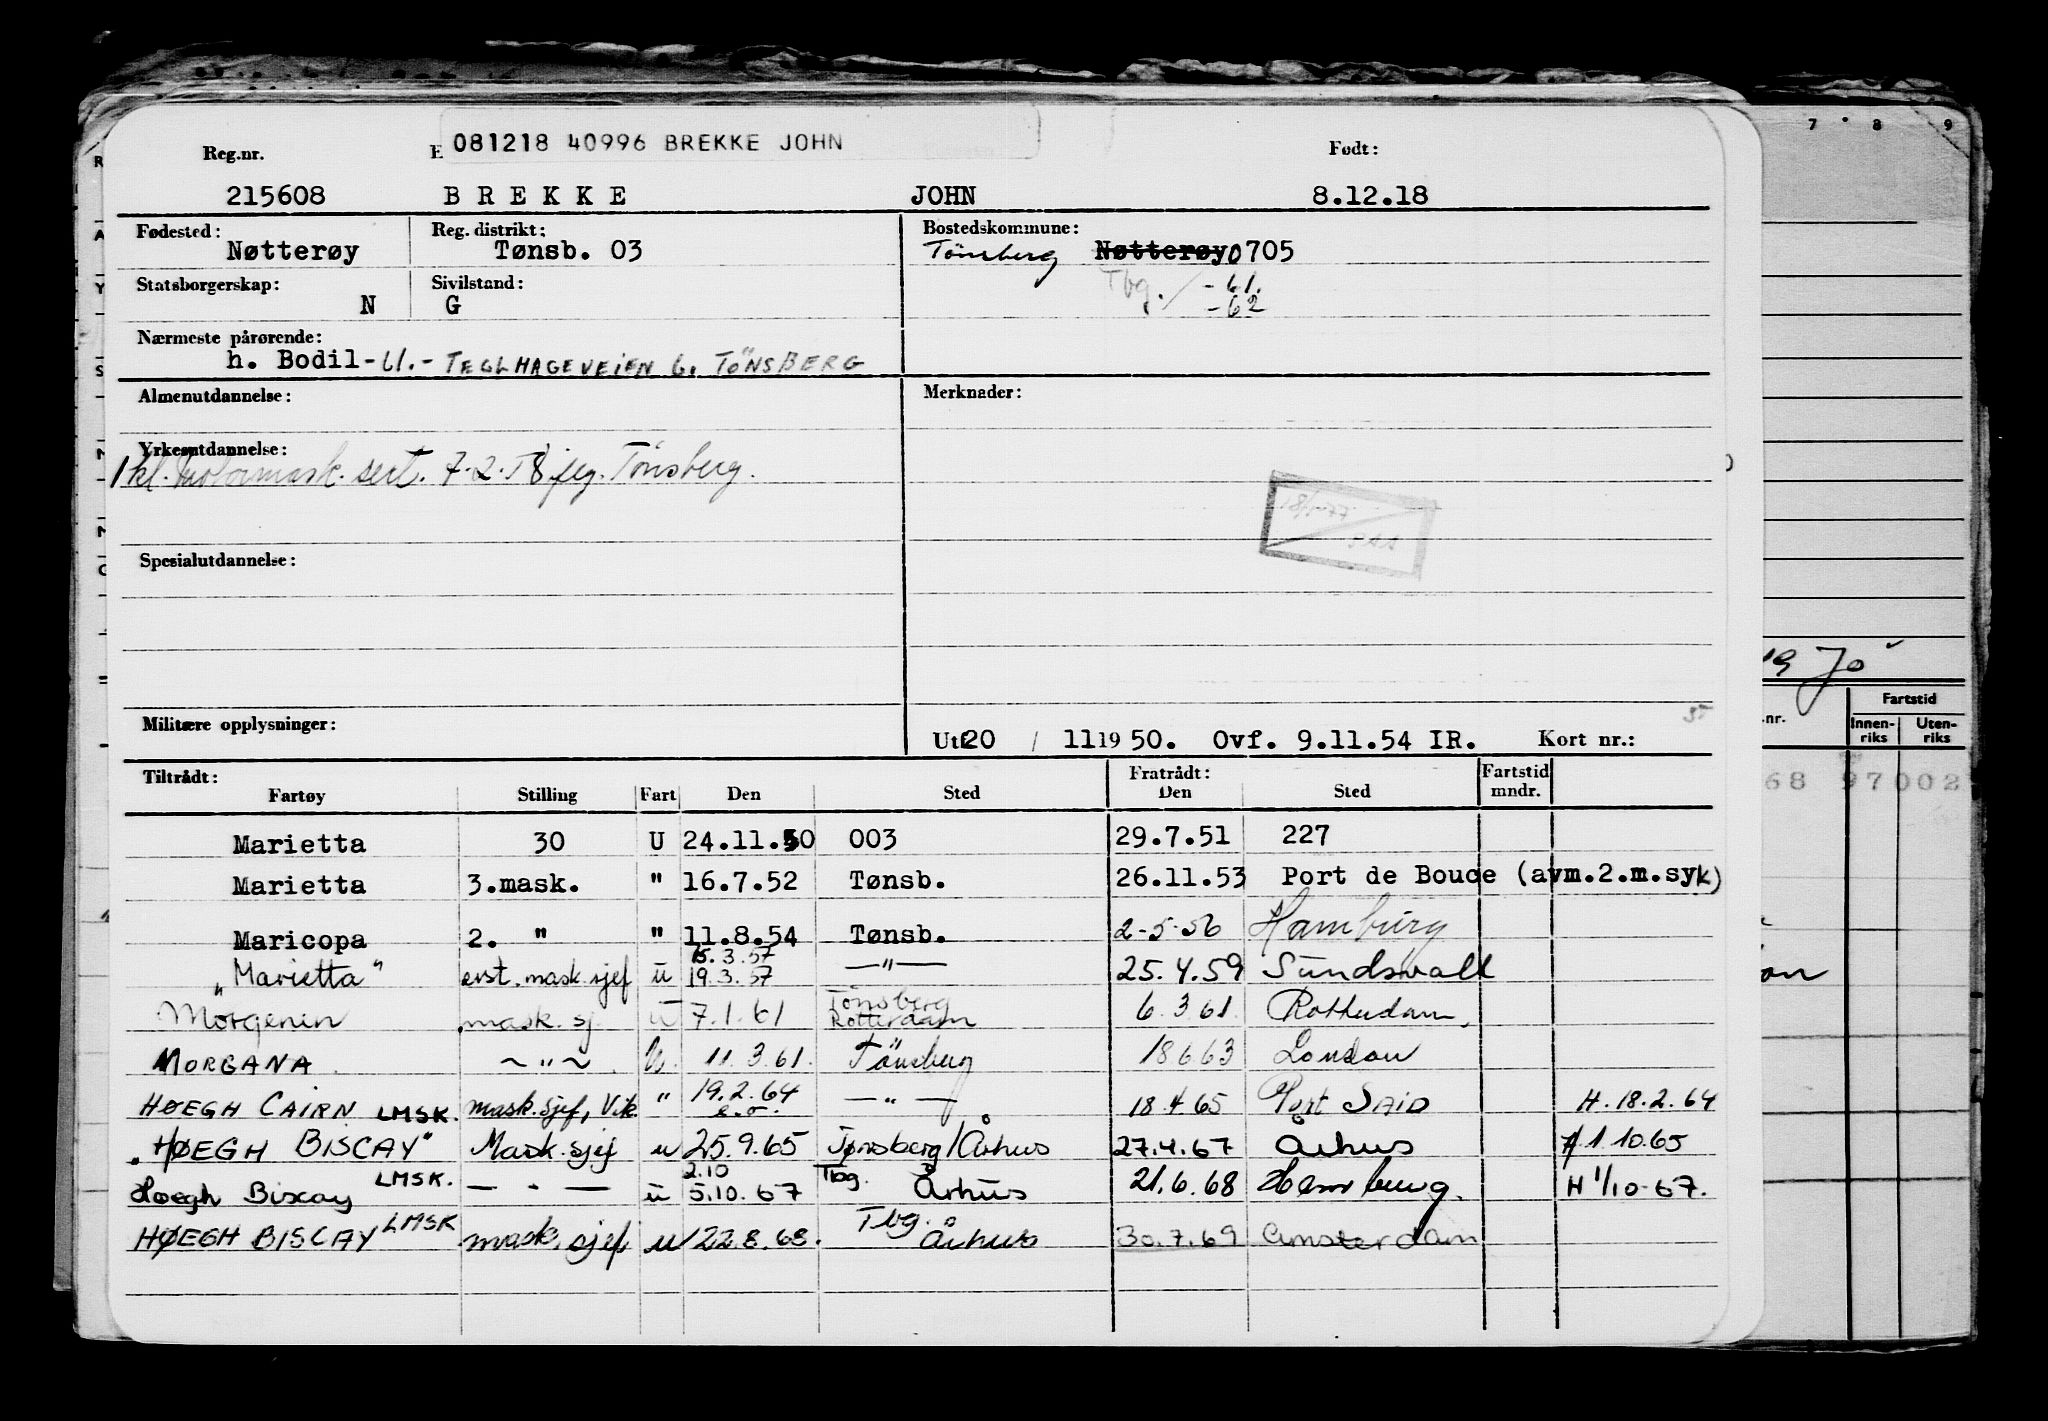 081218 40996 BREKKE JOHN
Reg.nr. Født:
215608 BREKKE JOHN 8.12.18
Fødested: Reg. distrikt: Bostedskommune:
Nøtterøy Tønsb. 03 Tönsberg Nøtterøy 0705
Statsborgerskap: Sivilstand: Tbg. / -61.
N G -62
Nærmeste pårørende:
h. Bodil -U.- TEGLHAGEVEIEN 6. TÖNSBERG
Almenutdannelse: Merknader:
Yrkesutdannelse:
1 kl. motormask. sert. 7-2-58 Tönsberg.
Spesialutdannelse:
Militære opplysninger:
Utf. 20 / 11 1950. Ovf. 9.11.54 IR. Kort nr.:
Tiltrådt: Fratrådt: Fartstid
Fartøy Stilling Fart Den Sted Den Sted mndr.
Marietta 30 U 24.11.50 003 29.7.51 227
Marietta 3.mask. " 16.7.52 Tønsb. 26.11.53 Port de Bouce (avm.2.m.syk)
Maricopa 2. " " 11.8.54 Tønsb. 2-5-56 Hamburg
15.3.57
"Marietta" erst. mask.sjef u 19.3.57 —"— 25.4.59 Sundsvall
Tönsberg
Morgenen mask. sj u 7.1.61 Rotterdam 6.3.61. Rotterdam.
MORGANA ~"~ U. 11.3.61. Tönsberg 18.6.63 London
HØEGH CAIRN LMSK. mask.sjef, Vik. " 19.2.64 —"— 18.4.65 Port SAID H. 18.2.64
e.o.
"HØEGH BISCAY" Mask.sjef u 25.9.65 Tønsberg/Århus 27.4.67 Århus H 1.10.65
2.10
Hoegh Biscay LMSK. — " — u 5.10.67 Tbg. Århus 21.6.68 Hamburg. H 1/10-67.
HØEGH BISCAY LMSK mask.sjef u 22.8.68. Tbg. Århus 30.7.69 Amsterdam
7 8 9
19 70
Fartstid
.nr. Innen- Uten-
riks riks
68 97002